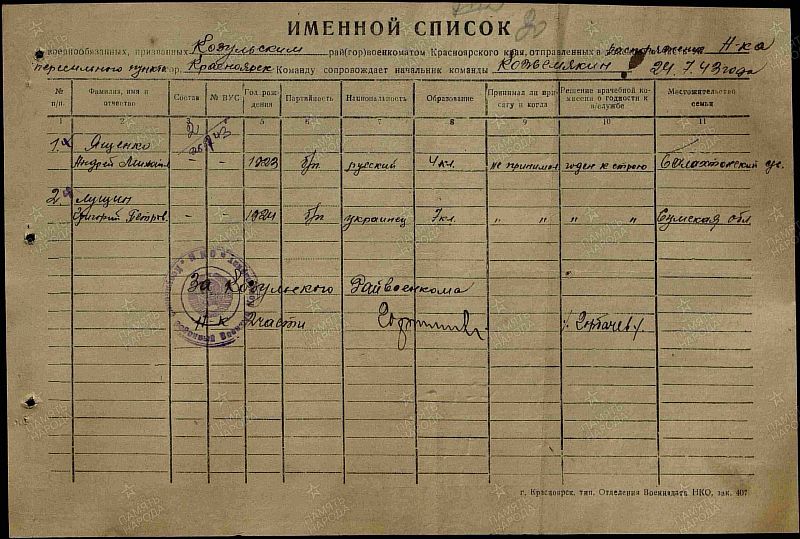 ИМЕННОЙ СПИСОК
военнообязанных, призванных Козульским рай(гор)военкоматом Красноярского края, отправленных в распоряжение Н-ка
пересыльного пункта гор. Красноярск Команду сопровождает начальник команды Козьемякин 24.7.43 года
№ п/п. Фамилия, имя и отчество Состав № ВУС Год рождения Партийность Национальность Образование Принимал ли присягу и когда Решение врачебной комиссии о годности к в/службе Местожительство семьи
1 2 3 4 5 6 7 8 9 10 11
1. Ященко
Андрей Михайл - - 1923 б/п русский 4 кл. не принимал годен к строю
2. Лущин
Григорий Петров. - - 1924 б/п украинец 7 кл. " " " " Сумская обл.
За Козульского Райвоенкома
Н-к 2 части /Горбачев/.
г. Красноярск, тип. Отделения Воениздата НКО, зак. 407
ПАМЯТЬ НАРОДА